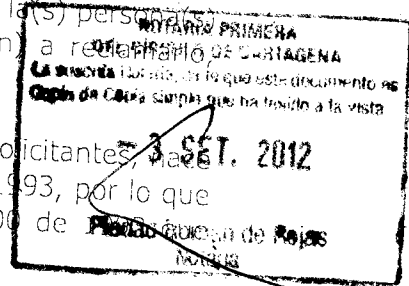 la(s) persona(s)
NOTARIA PRIMERA
n) a reclamarlo,
DEL CIRCULO DE CARTAGENA
La suscrita Notaria, da fe que este documento es
Copia de Copia simple que ha tenido a la vista
olicitantes, hace
- 3 SET. 2012
1993, por lo que
00 de
de Rojas
NOTARIA